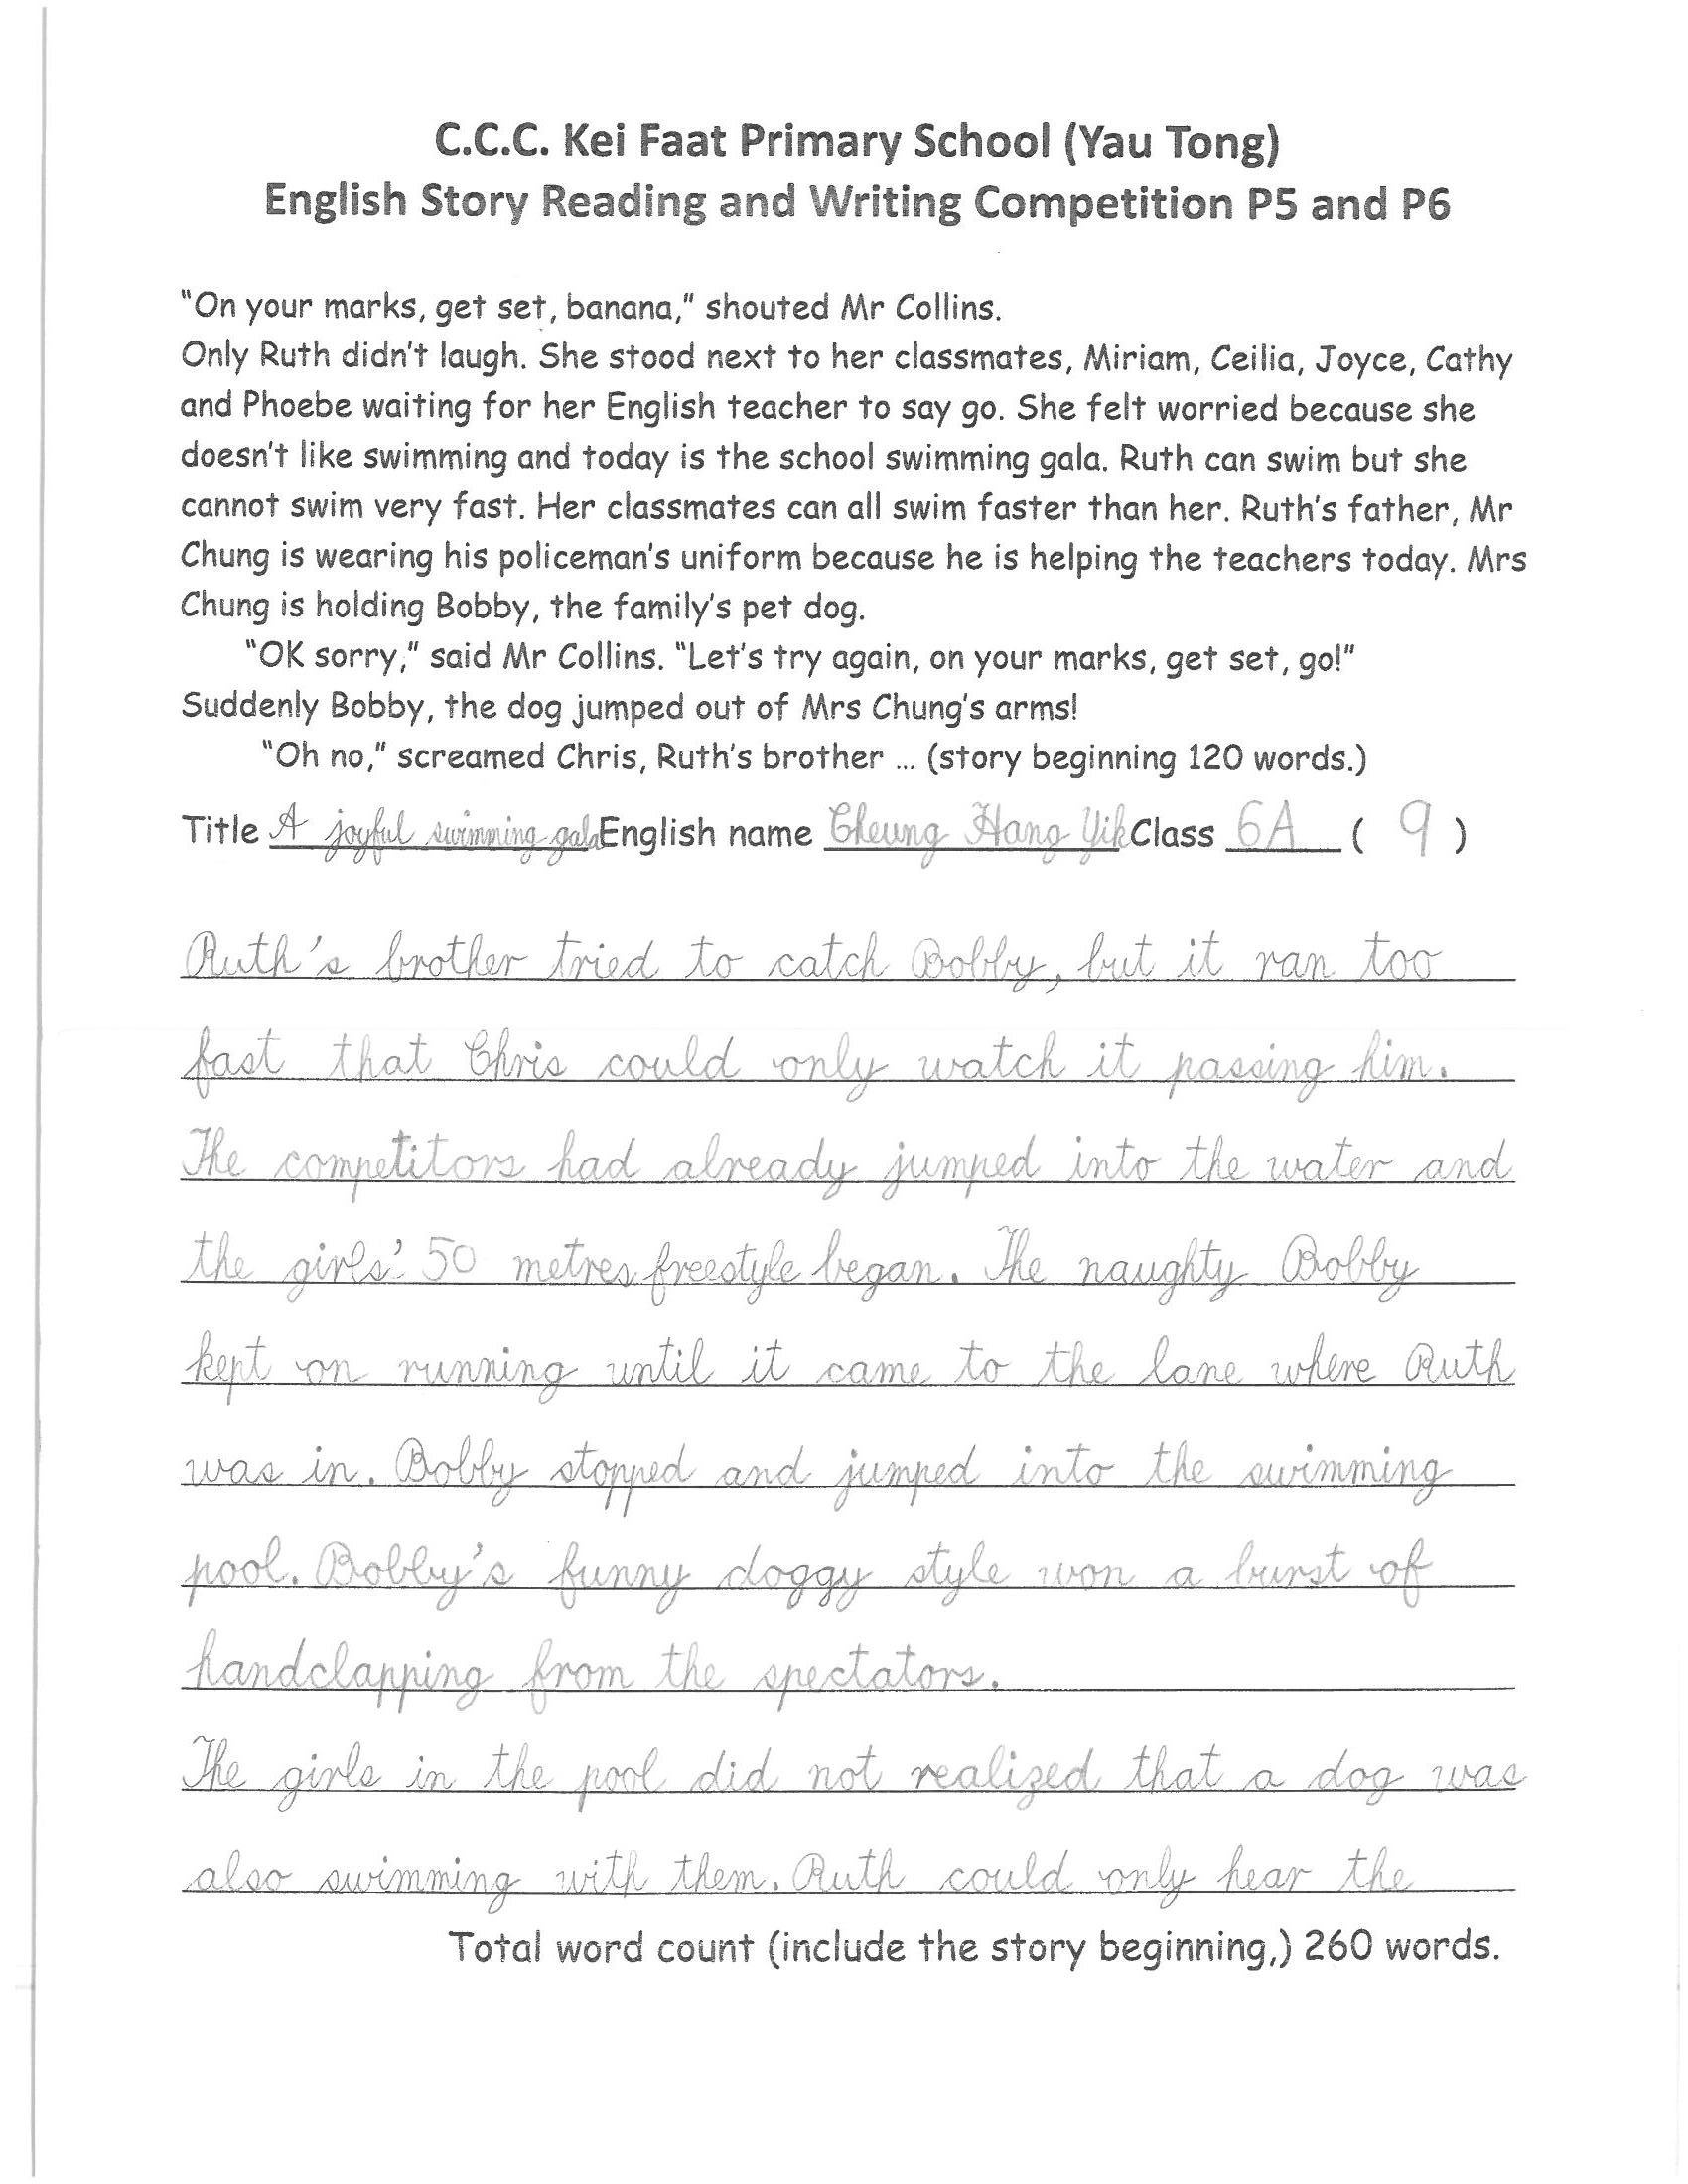 C.C.C. Kei Faat Primary School (Yau Tong)
English Story Reading and Writing Competition P5 and P6
"On your marks, get set, banana," shouted Mr Collins.
Only Ruth didn't laugh. She stood next to her classmates, Miriam, Ceilia, Joyce, Cathy
and Phoebe waiting for her English teacher to say go. She felt worried because she
doesn't like swimming and today is the school swimming gala. Ruth can swim but she
cannot swim very fast. Her classmates can all swim faster than her. Ruth's father, Mr
Chung is wearing his policeman's uniform because he is helping the teachers today. Mrs
Chung is holding Bobby, the family's pet dog.
"OK sorry," said Mr Collins. "Let's try again, on your marks, get set, go!"
Suddenly Bobby, the dog jumped out of Mrs Chung's arms!
"Oh no," screamed Chris, Ruth's brother ... (story beginning 120 words.)
Title A joyful swimming gala English name Cheung Hang Yik Class 6A ( 9 )
Ruth's brother tried to catch Bobby, but it ran too
fast that Chris could only watch it passing him.
The competitors had already jumped into the water and
the girls' 50 metres freestyle began. The naughty Bobby
kept on running until it came to the lane where Ruth
was in. Bobby stopped and jumped into the swimming
pool. Bobby's funny doggy style won a burst of
handclapping from the spectators.
The girls in the pool did not realized that a dog was
also swimming with them. Ruth could only hear the
Total word count (include the story beginning,) 260 words.